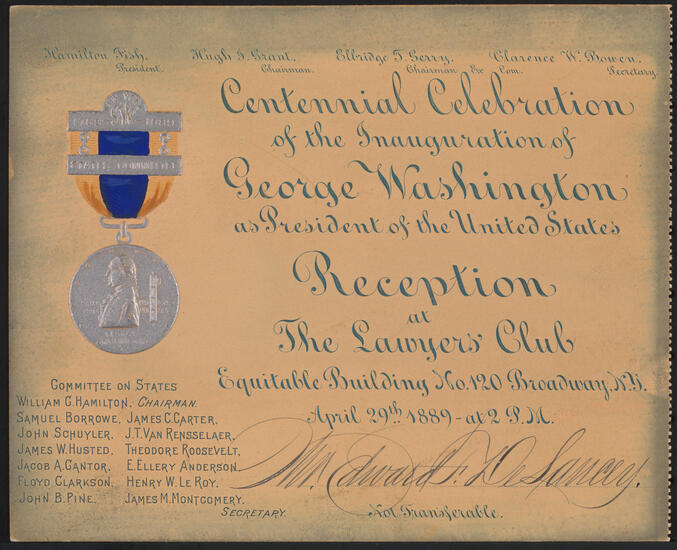 Hamilton Fish, Hugh J. Grant, Elbridge T. Gerry, Clarence W. Bowen,
President. Chairman. Chairman Ex Com. Secretary.
Centennial Celebration
of the Inauguration of
George Washington
as President of the United States
Reception
at
The Lawyers' Club
Equitable Building No. 120 Broadway, N.Y.
April 29th 1889 - at 2 P.M.
Mr. Edward F. De Lancey.
Not Transferable.
STATES COMMITTEE
COMMITTEE ON STATES
WILLIAM G. HAMILTON, CHAIRMAN.
SAMUEL BORROWE, JAMES C. CARTER,
JOHN SCHUYLER, J. T. VAN RENSSELAER,
JAMES W. HUSTED, THEODORE ROOSEVELT,
JACOB A. CANTOR, E. ELLERY ANDERSON,
FLOYD CLARKSON, HENRY W. LE ROY,
JOHN B. PINE, JAMES M. MONTGOMERY,
SECRETARY.